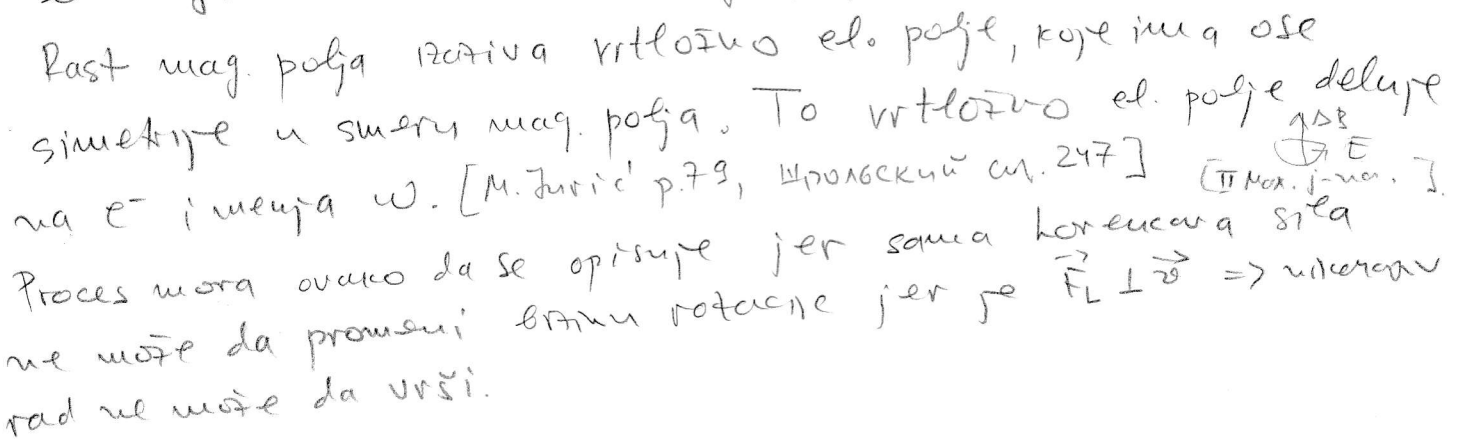 Rast mag. polja izaziva vrtložno el. polje, koje ima ose
simetrije u smeru mag. polja. To vrtložno el. polje deluje
ΔB
E
na e⁻ i menja ω. [M. Jurić p.79, Шпольский cтр. 247] [II Max. j-na.].
Proces mora ovako da se opisuje jer sama Lorencova sila
ne može da promeni brzinu rotacije jer je F⃗_L ⊥ v⃗ => nikakav
rad ne može da vrši.